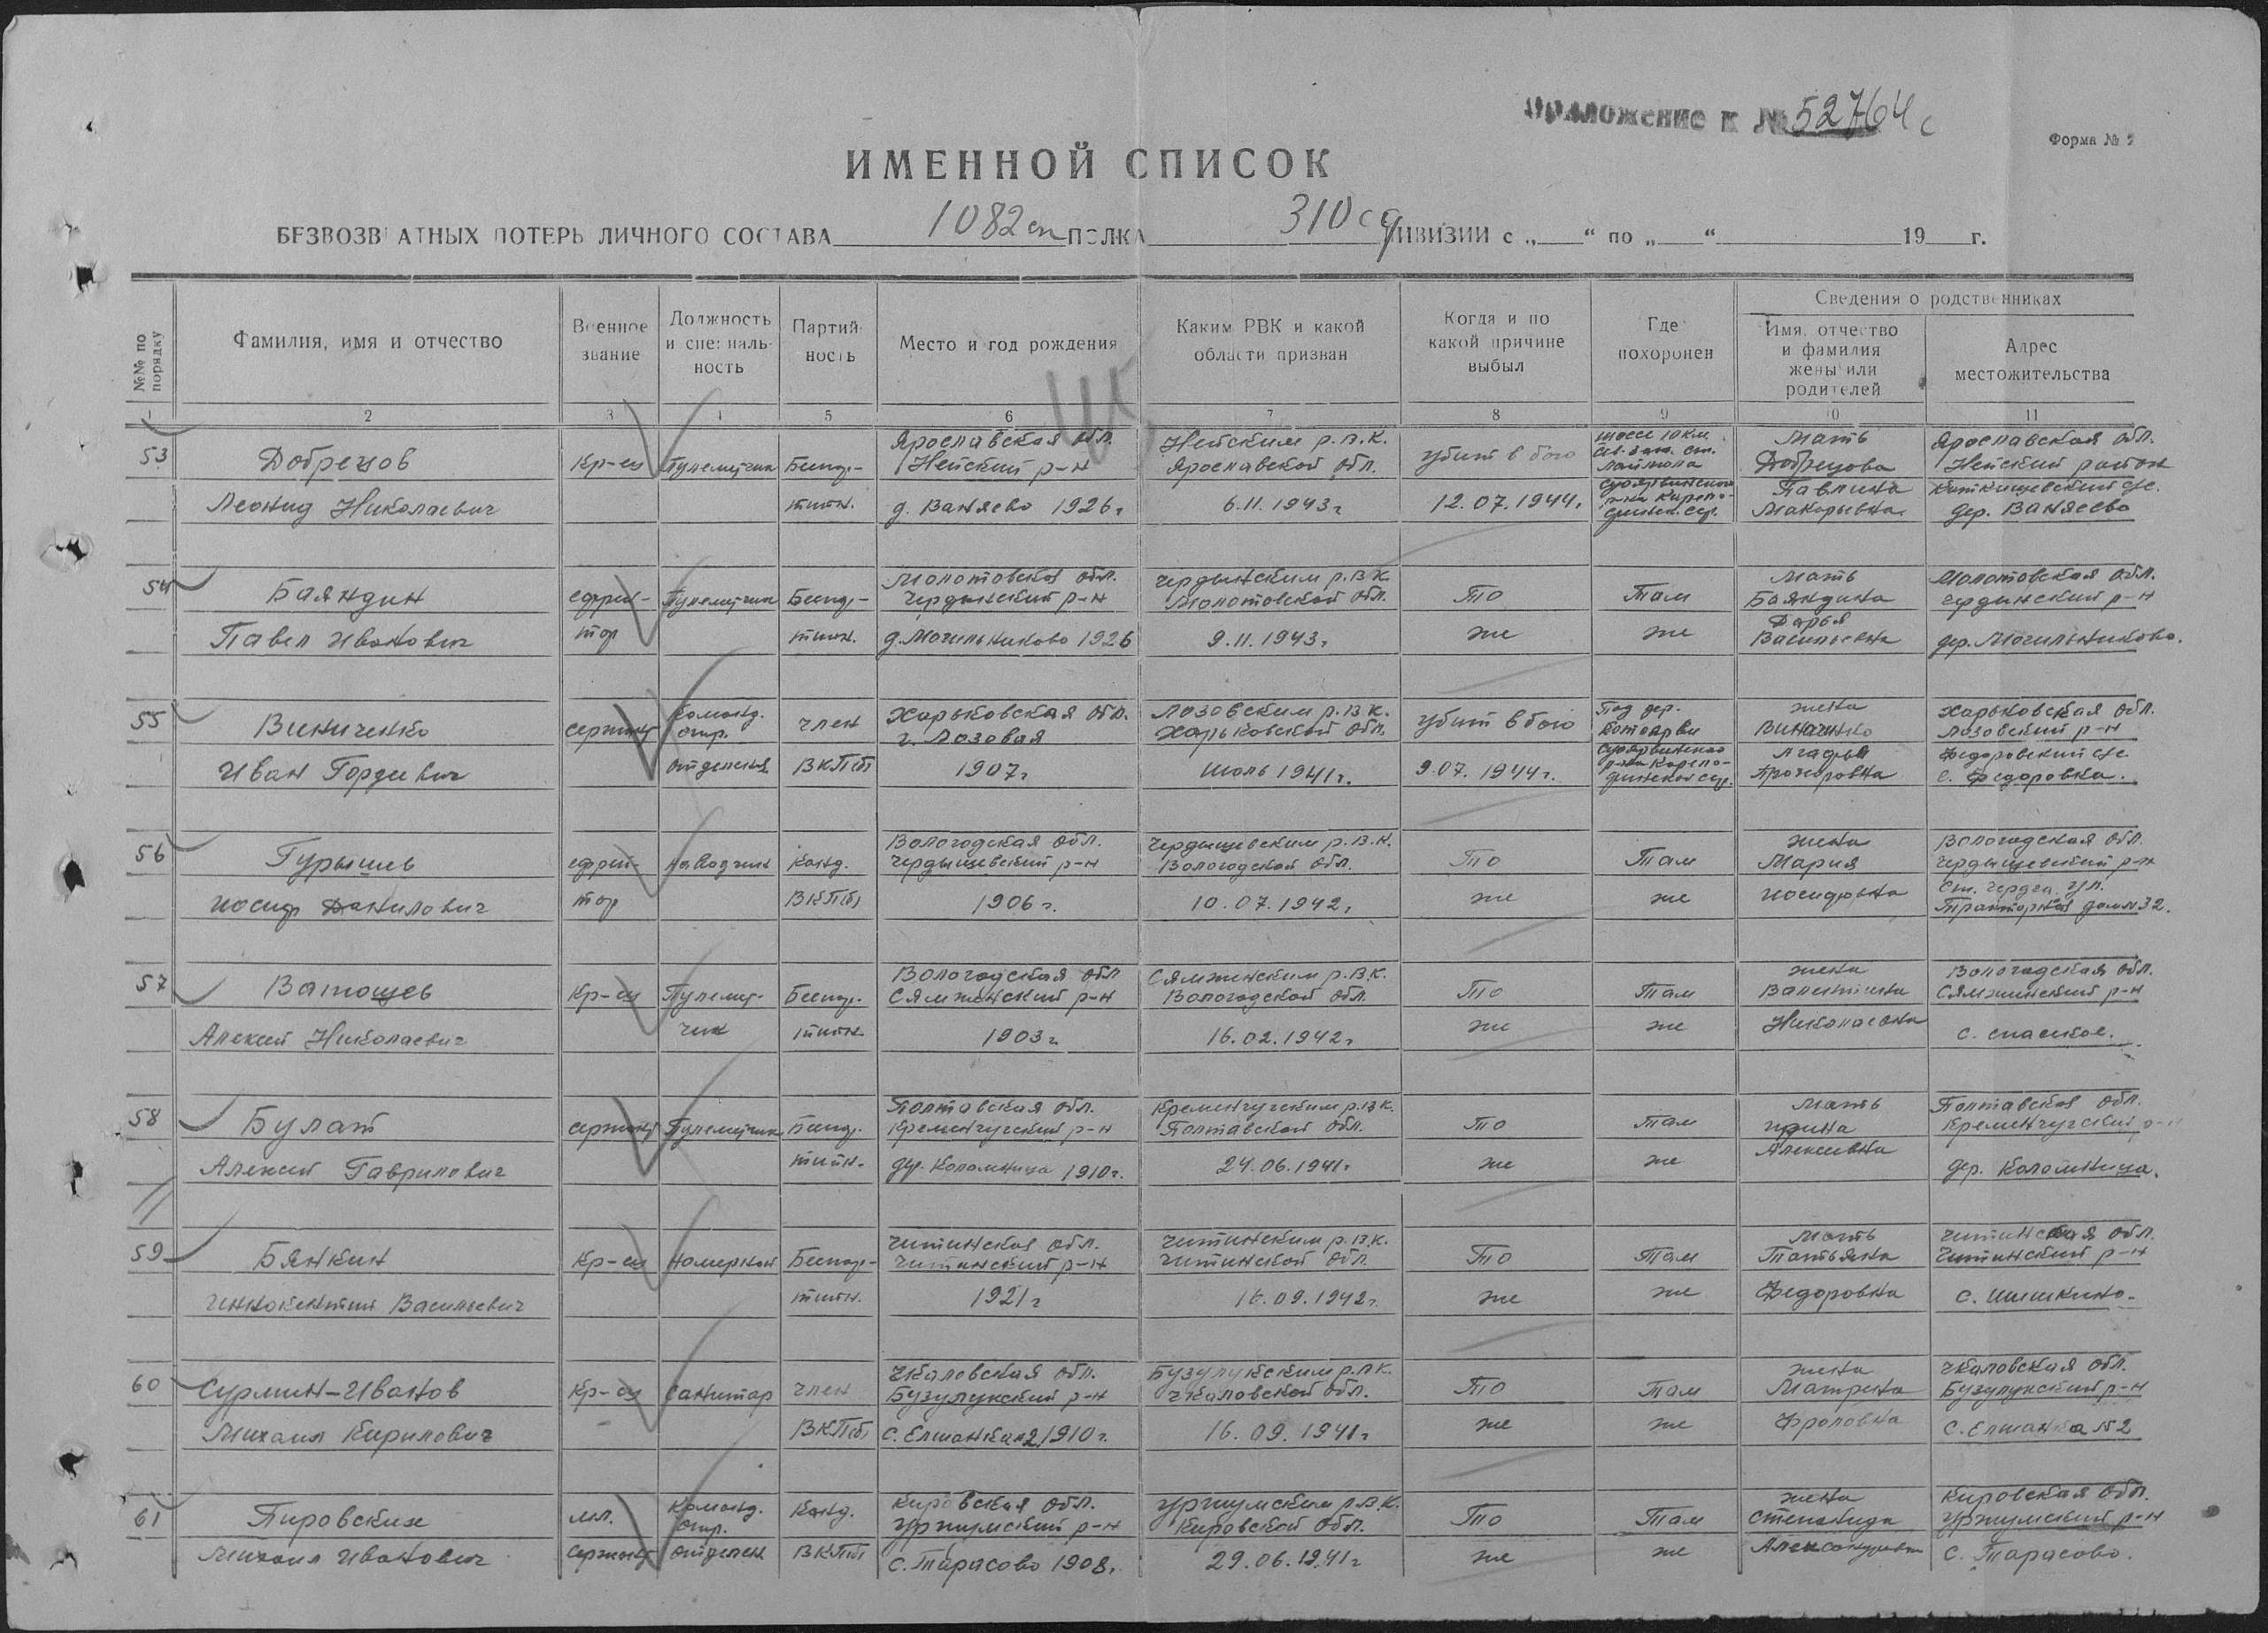 Приложение к № 52764с
Форма № 2
ИМЕННОЙ СПИСОК
БЕЗВОЗВРАТНЫХ ПОТЕРЬ ЛИЧНОГО СОСТАВА 1082 сп ПОЛКА 310 сд ДИВИЗИИ с „ “ по „ “ 19 г.
№№ по порядку
Фамилия, имя и отчество
Военное звание
Должность и специальность
Партийность
Место и год рождения
Каким РВК и какой области призван
Когда и по какой причине выбыл
Где похоронен
Сведения о родственниках
Имя, отчество и фамилия жены или родителей
Адрес местожительства
1 2 3 4 5 6 7 8 9 10 11
53 Добрецов кр-ец Пулеметчик Беспар- Ярославская обл. Нейский р-н Нейским р.в.к. Ярославской обл. убит в бою шоссе 10 км. ст. Лоймола Мать Добрецова Ярославская обл. Нейский район
Леонид Николаевич тийн. д. Ваняево 1926г 6.11.1943г 12.07.1944г. Суоярвинского р-на Карело-финск. сср. Павлина Макарьевна дер. Ваняево
54 Баяндин ефрей- Пулеметчик Беспар- Молотовская обл. Чердынский р-н Чердынским р.в.к. Молотовской обл. То Там Мать Баяндина Молотовская обл. Чердынский р-н
Павел Иванович тор тийн. д. Могильниково 1926 9.11.1943г. же же Дарья Васильевна дер. Могильниково.
55 Виниченко сержант команд. стр. член Харьковская обл. г. Лозовая Лозовским р.в.к. Харьковской обл. убит в бою Под дер. жена Виниченко Харьковская обл. Лозовский р-н
Иван Гордеевич отделения ВКП(б) 1907г июль 1941г. 9.07.1944г. Суоярвинского р-на Карело-финской сср. Прохоровна Федоровский с/с. с. Федоровка.
56 Гурышев ефрей- наводчик канд. Вологодская обл. Чердынцевский р-н Чердынцевским р.в.к. Вологодской обл. То Там жена Мария Вологодская обл. Чердынцевский р-н
Иосиф Данилович тор ВКП(б) 1906г. 10.07.1942г. же же Иосифовна ул. Тракторная дом №32.
57 Ватющев кр-ец Пулемет- Беспар- Вологодская обл Сямженский р-н Сямженским р.в.к. Вологодской обл. То Там жена Валентина Вологодская обл. Сямженский р-н
Алексей Николаевич чик тийн. 1903г. 16.02.1942г. же же Николаевна с. Спасское.
58 Булат сержант Пулеметчик Беспар. Полтавская обл. Кременчугский р-н Кременчугским р.в.к. Полтавской обл. То Там Мать Ирина Полтавская обл. Кременчугский р-н
Алексей Гаврилович тийн. дер. Коломница 1910г. 24.06.1941г же же Алексеевна дер. Коломница.
59 Бянкин кр-ец номерной Беспар- Читинская обл. Читинский р-н Читинским р.в.к. Читинской обл. То Там Мать Татьяна Читинская обл. Читинский р-н
Иннокентий Васильевич тийн. 1921г 16.09.1942г. же же Федоровна с. Шишкино.
60 Сурмин-Иванов кр-ец санитар член Чкаловская обл. Бузулукский р-н Бузулукским р.в.к. Чкаловской обл. То Там жена Матрена Чкаловская обл. Бузулукский р-н
Михаил Кирилович ВКП(б) с. Елшанка 2 1910г. 16.09.1941г же же Фроловна с. Елшанка №2
61 Пировских мл. команд. стр. канд. Кировская обл. Уржумский р-н Уржумским р.в.к. Кировской обл. То Там жена Степанида Кировская обл. Уржумский р-н
Михаил Иванович сержант отделен ВКП(б) с. Тарасово 1908г. 29.06.1941г же же Александровна с. Тарасово.